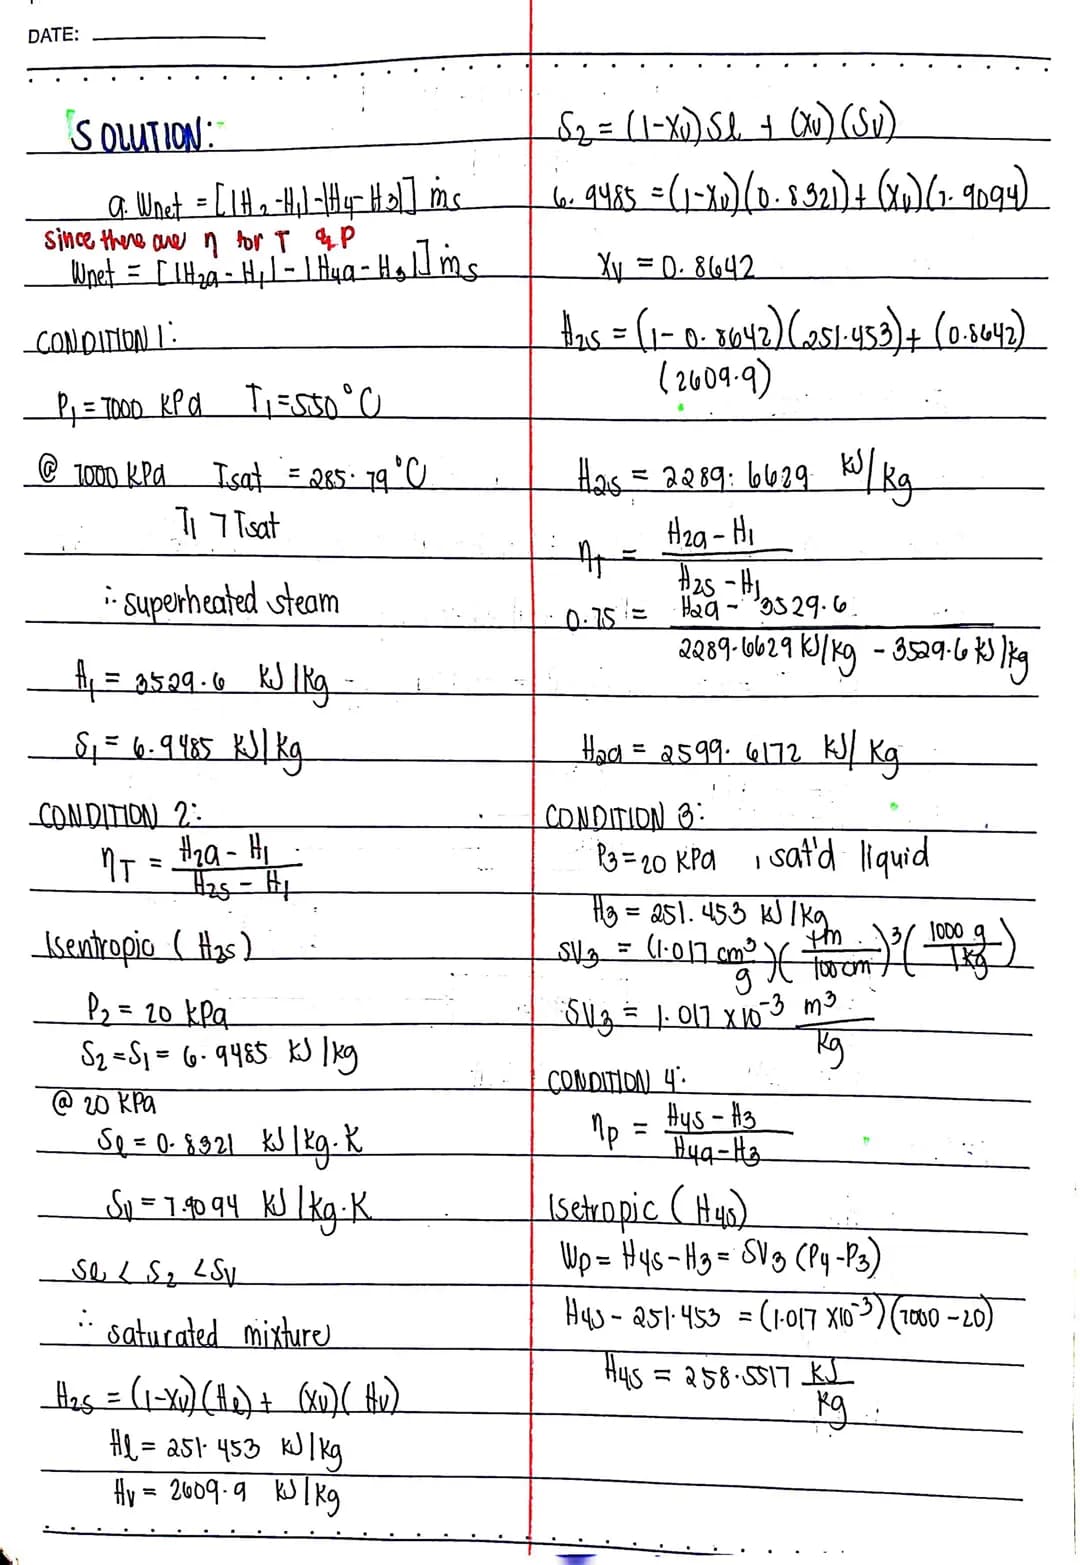 DATE:
SOLUTION:
a. Wnet = [|H2-H1|-|H4-H3|] ṁs
since there are η for T & P
Wnet = [|H2a - H1| - |H4a - H3|] ṁs
CONDITION 1:
P1 = 7000 kPa T1 = 550°C
@ 7000 kPa Tsat = 285.79 °C
T1 > Tsat
∴ superheated steam
H1 = 3529.6 kJ/kg
S1 = 6.9485 kJ/kg
CONDITION 2:
ηT = H2a - H1 / H2s - H1
Isentropic (H2s)
P2 = 20 kPa
S2 = S1 = 6.9485 kJ/kg
@ 20 kPa
Sl = 0.8321 kJ/kg.K
Sv = 7.9094 kJ/kg.K
Sl < S2 < Sv
∴ saturated mixture
H2s = (1-Xv)(Hl) + (Xv)(Hv)
Hl = 251.453 kJ/kg
Hv = 2609.9 kJ/kg
S2 = (1-Xv)Sl + (Xv)(Sv)
6.9485 = (1-Xv)(0.8321) + (Xv)(7.9094)
Xv = 0.8642
H2s = (1-0.8642)(251.453) + (0.8642)
(2609.9)
H2s = 2289.6629 kJ/kg
ηT = H2a - H1 / H2s - H1
0.75 = H2a - 3529.6 / 2289.6629 kJ/kg - 3529.6 kJ/kg
H2a = 2599.6172 kJ/kg
CONDITION 3:
P3 = 20 kPa , sat'd liquid
H3 = 251.453 kJ/kg
SV3 = (1.017 cm³/g)(1m/100cm)³(1000 g/1kg)
SV3 = 1.017 x10⁻³ m³/kg
CONDITION 4:
ηp = H4s - H3 / H4a - H3
Isetropic (H4s)
Wp = H4s - H3 = SV3 (P4 - P3)
H4s - 251.453 = (1.017 x10⁻³)(7000 - 20)
H4s = 258.5517 kJ/kg